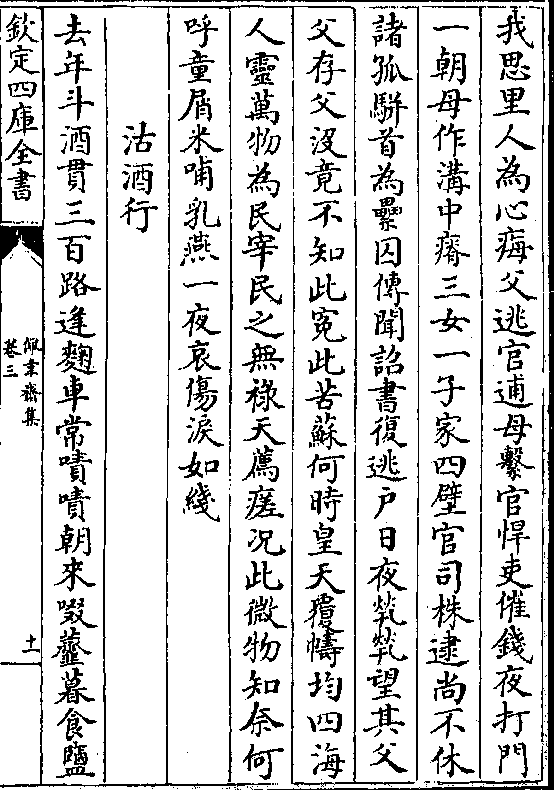 我思里人為心痗父逃官逋母繫官悍吏催錢夜打門
一朝母作溝中瘠三女一子家四壁官司株逮尚不休
諸孤駢首為纍囚傳聞詔書復逃户日夜煢煢望其父
父存父没竟不知此寃此苦蘇何時皇天覆幬均四海
人靈萬物為民宰民之無禄天薦瘥况此微物知奈何
呼童屑米哺乳燕一夜哀傷淚如綫
沽酒行
去年斗酒貫三百路逢麴車常嘖嘖朝來啜虀暮食鹽
欽定四庫全書
佩韋齋集
卷三
十一